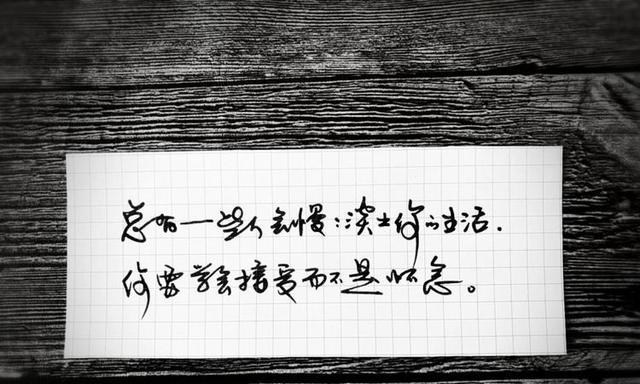 总有一些人会慢慢淡出你的生活.
你要学会接受而不是怀念。